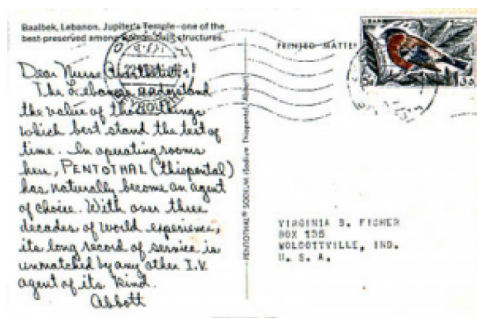 Baalbek, Lebanon. Jupiter's Temple–one of the
best-preserved among Roman-built structures.
Dear Nurse
The Lebanese understand
the value of those things
which best stand the test of
time. In operating rooms
here, PENTOTHAL (thiopental)
has naturally become an agent
of choice. With over three
decades of world experience,
its long record of service is
unmatched by any other I.V.
agent of its kind.
Abbott
PENTOTHAL® SODIUM (Sodium Thiopental, Abbott)
PRINTED MATTER
LIBAN
VIRGINIA B. FISHER
BOX 135
WOLCOTTVILLE, IND.
U. S. A.